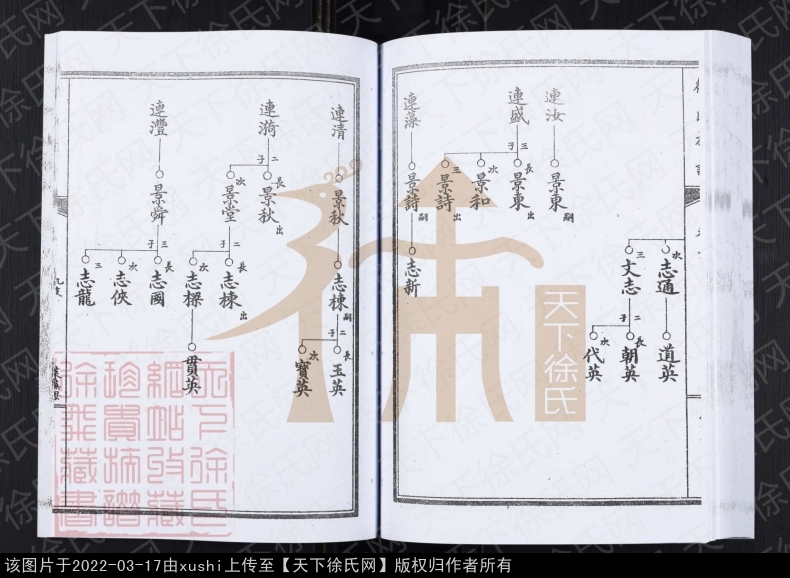 連汝
景東
嗣
連盛
三子
長
景東
出
次
景和
三
景詩
出
連藻
景詩
嗣
志新
次
志通
道英
三
文志
二子
長
朝英
次
代英
連清
景秋
嗣
志棟
嗣
二子
長
玉英
次
寶英
連漪
二子
長
景秋
出
次
景堂
二子
長
志棟
出
次
志樑
貫英
連灃
景舜
三子
長
志國
次
志俠
三
志龍
天下徐氏
天下徐氏网
该图片于2022-03-17由xushi上传至【天下徐氏网】版权归作者所有